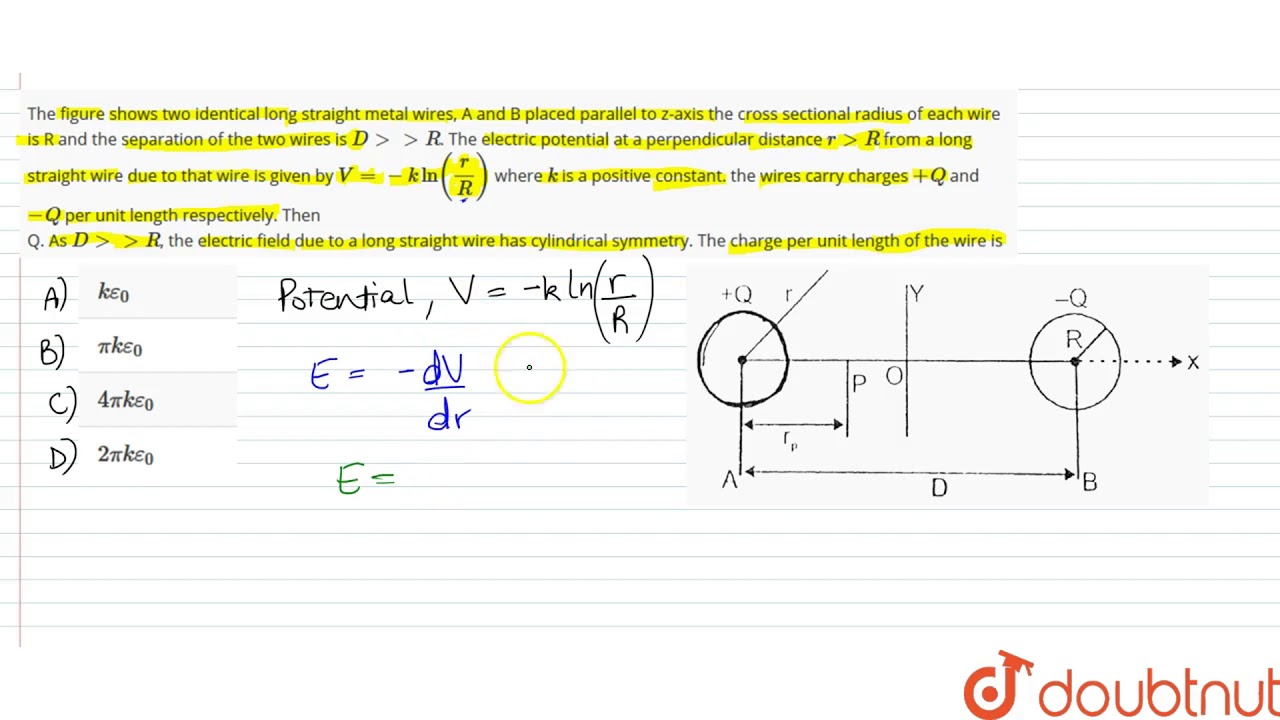 The figure shows two identical long straight metal wires, A and B placed parallel to z-axis the cross sectional radius of each wire
is R and the separation of the two wires is D > > R. The electric potential at a perpendicular distance r > R from a long
straight wire due to that wire is given by V = −k ln(r/R) where k is a positive constant. the wires carry charges +Q and
−Q per unit length respectively. Then
Q. As D > > R, the electric field due to a long straight wire has cylindrical symmetry. The charge per unit length of the wire is
A) kε₀
B) πkε₀
C) 4πkε₀
D) 2πkε₀
Potential, V = -k ln(r/R)
E = -dV/dr
E =
+Q r Y −Q
R
P O X
r_p
A D B
doubtnut